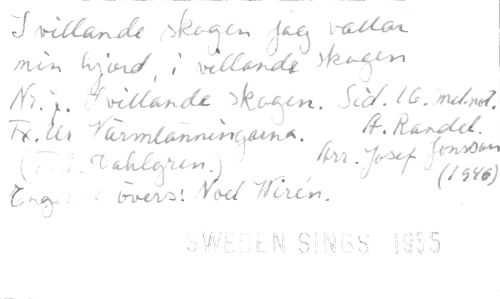 I villande skogen jag vallar
min hjord, i villande skogen
Nr. 7. I villande skogen. Sid. 16. mel. not.
Tx. Ur Värmlänningarna. A. Randel.
(F.A. Dahlgren.) Arr. Josef Jonsson
(1946)
övers: Noel Wirén.
SWEDEN SINGS 1955